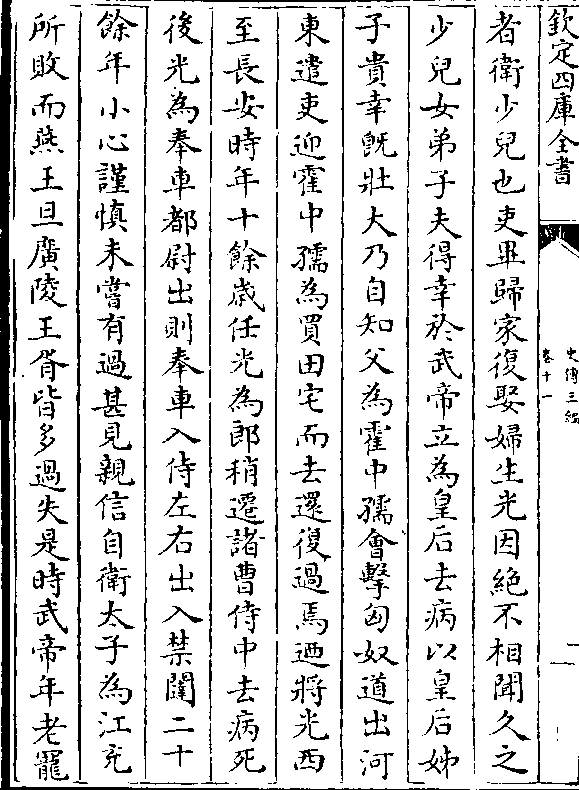 欽定四庫全書
史傳三編
卷十一
二
者衛少兒也吏畢歸家復娶婦生光因絶不相聞久之
少兒女弟子夫得幸於武帝立為皇后去病以皇后姊
子貴幸既壯大乃自知父為霍中孺會擊匈奴道出河
東遣吏迎霍中孺為買田宅而去還復過焉迺將光西
至長安時年十餘歲任光為郎稍遷諸曹侍中去病死
後光為奉車都尉出則奉車入侍左右出入禁闥二十
餘年小心謹慎未嘗有過甚見親信自衛太子為江充
所敗而燕王旦廣陵王胥皆多過失是時武帝年老寵